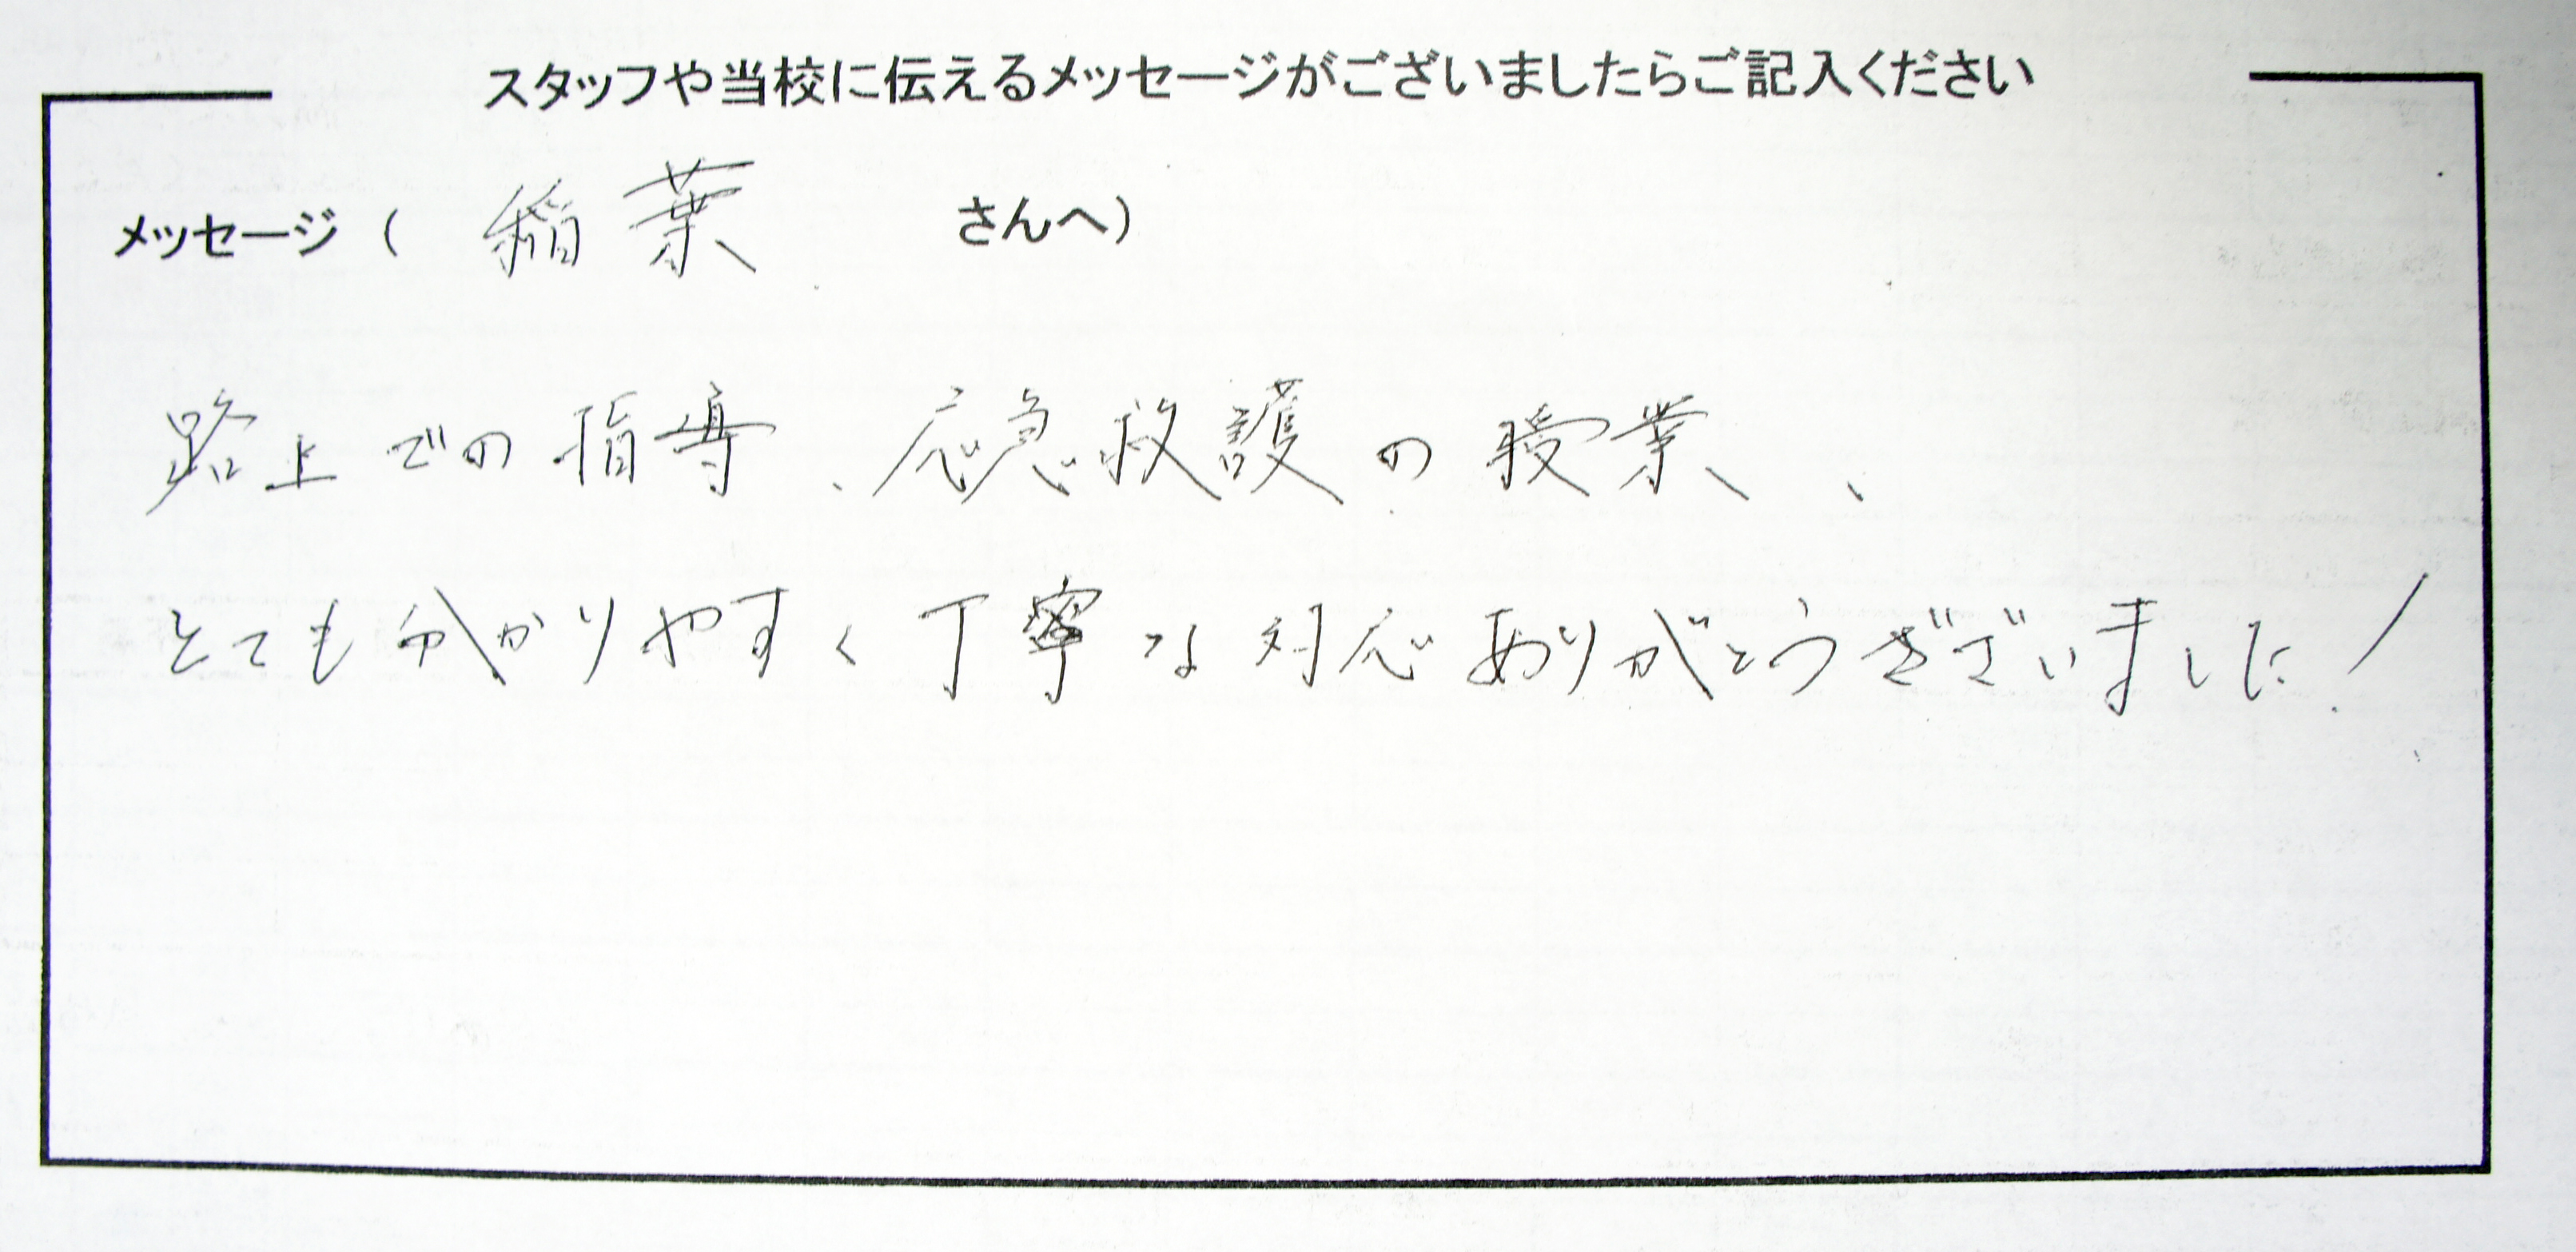 スタッフや当校に伝えるメッセージがございましたらご記入ください
メッセージ ( 稲葉 さんへ)
路上での指導、応急救護の授業、
とても分かりやすく丁寧な対応ありがとうございました!